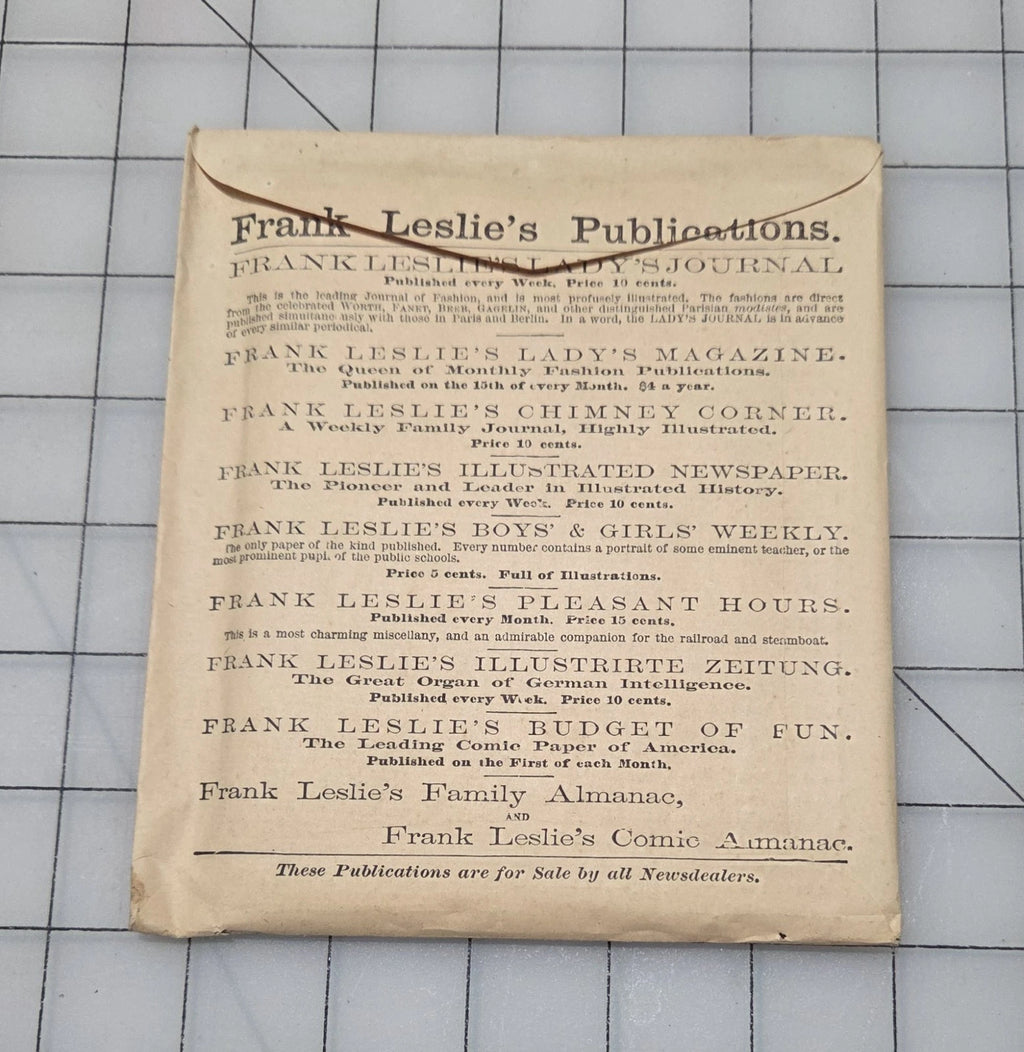 Frank Leslie's Publications.
FRANK LESLIE'S LADY'S JOURNAL
Published every Week. Price 10 cents.
This is the leading Journal of Fashion, and is most profusely illustrated. The fashions are direct
from the celebrated WORTH, FANET, BEER, GAGELIN, and other distinguished Parisian modistes, and are
published simultane usly with those in Paris and Berlin. In a word, the LADY'S JOURNAL is in advance
of every similar periodical.
FRANK LESLIE'S LADY'S MAGAZINE.
The Queen of Monthly Fashion Publications.
Published on the 15th of every Month. $4 a year.
FRANK LESLIE'S CHIMNEY CORNER.
A Weekly Family Journal, Highly Illustrated.
Price 10 cents.
FRANK LESLIE'S ILLUSTRATED NEWSPAPER.
The Pioneer and Leader in Illustrated History.
Published every Week. Price 10 cents.
FRANK LESLIE'S BOYS' & GIRLS' WEEKLY.
The only paper of the kind published. Every number contains a portrait of some eminent teacher, or the
most prominent pupi. of the public schools.
Price 5 cents. Full of Illustrations.
FRANK LESLIE'S PLEASANT HOURS.
Published every Month. Price 15 cents.
This is a most charming miscellany, and an admirable companion for the railroad and steamboat.
FRANK LESLIE'S ILLUSTRIRTE ZEITUNG.
The Great Organ of German Intelligence.
Published every Week. Price 10 cents.
FRANK LESLIE'S BUDGET OF FUN.
The Leading Comic Paper of America.
Published on the First of each Month.
Frank Leslie's Family Almanac,
AND
Frank Leslie's Comic Almanac.
These Publications are for Sale by all Newsdealers.